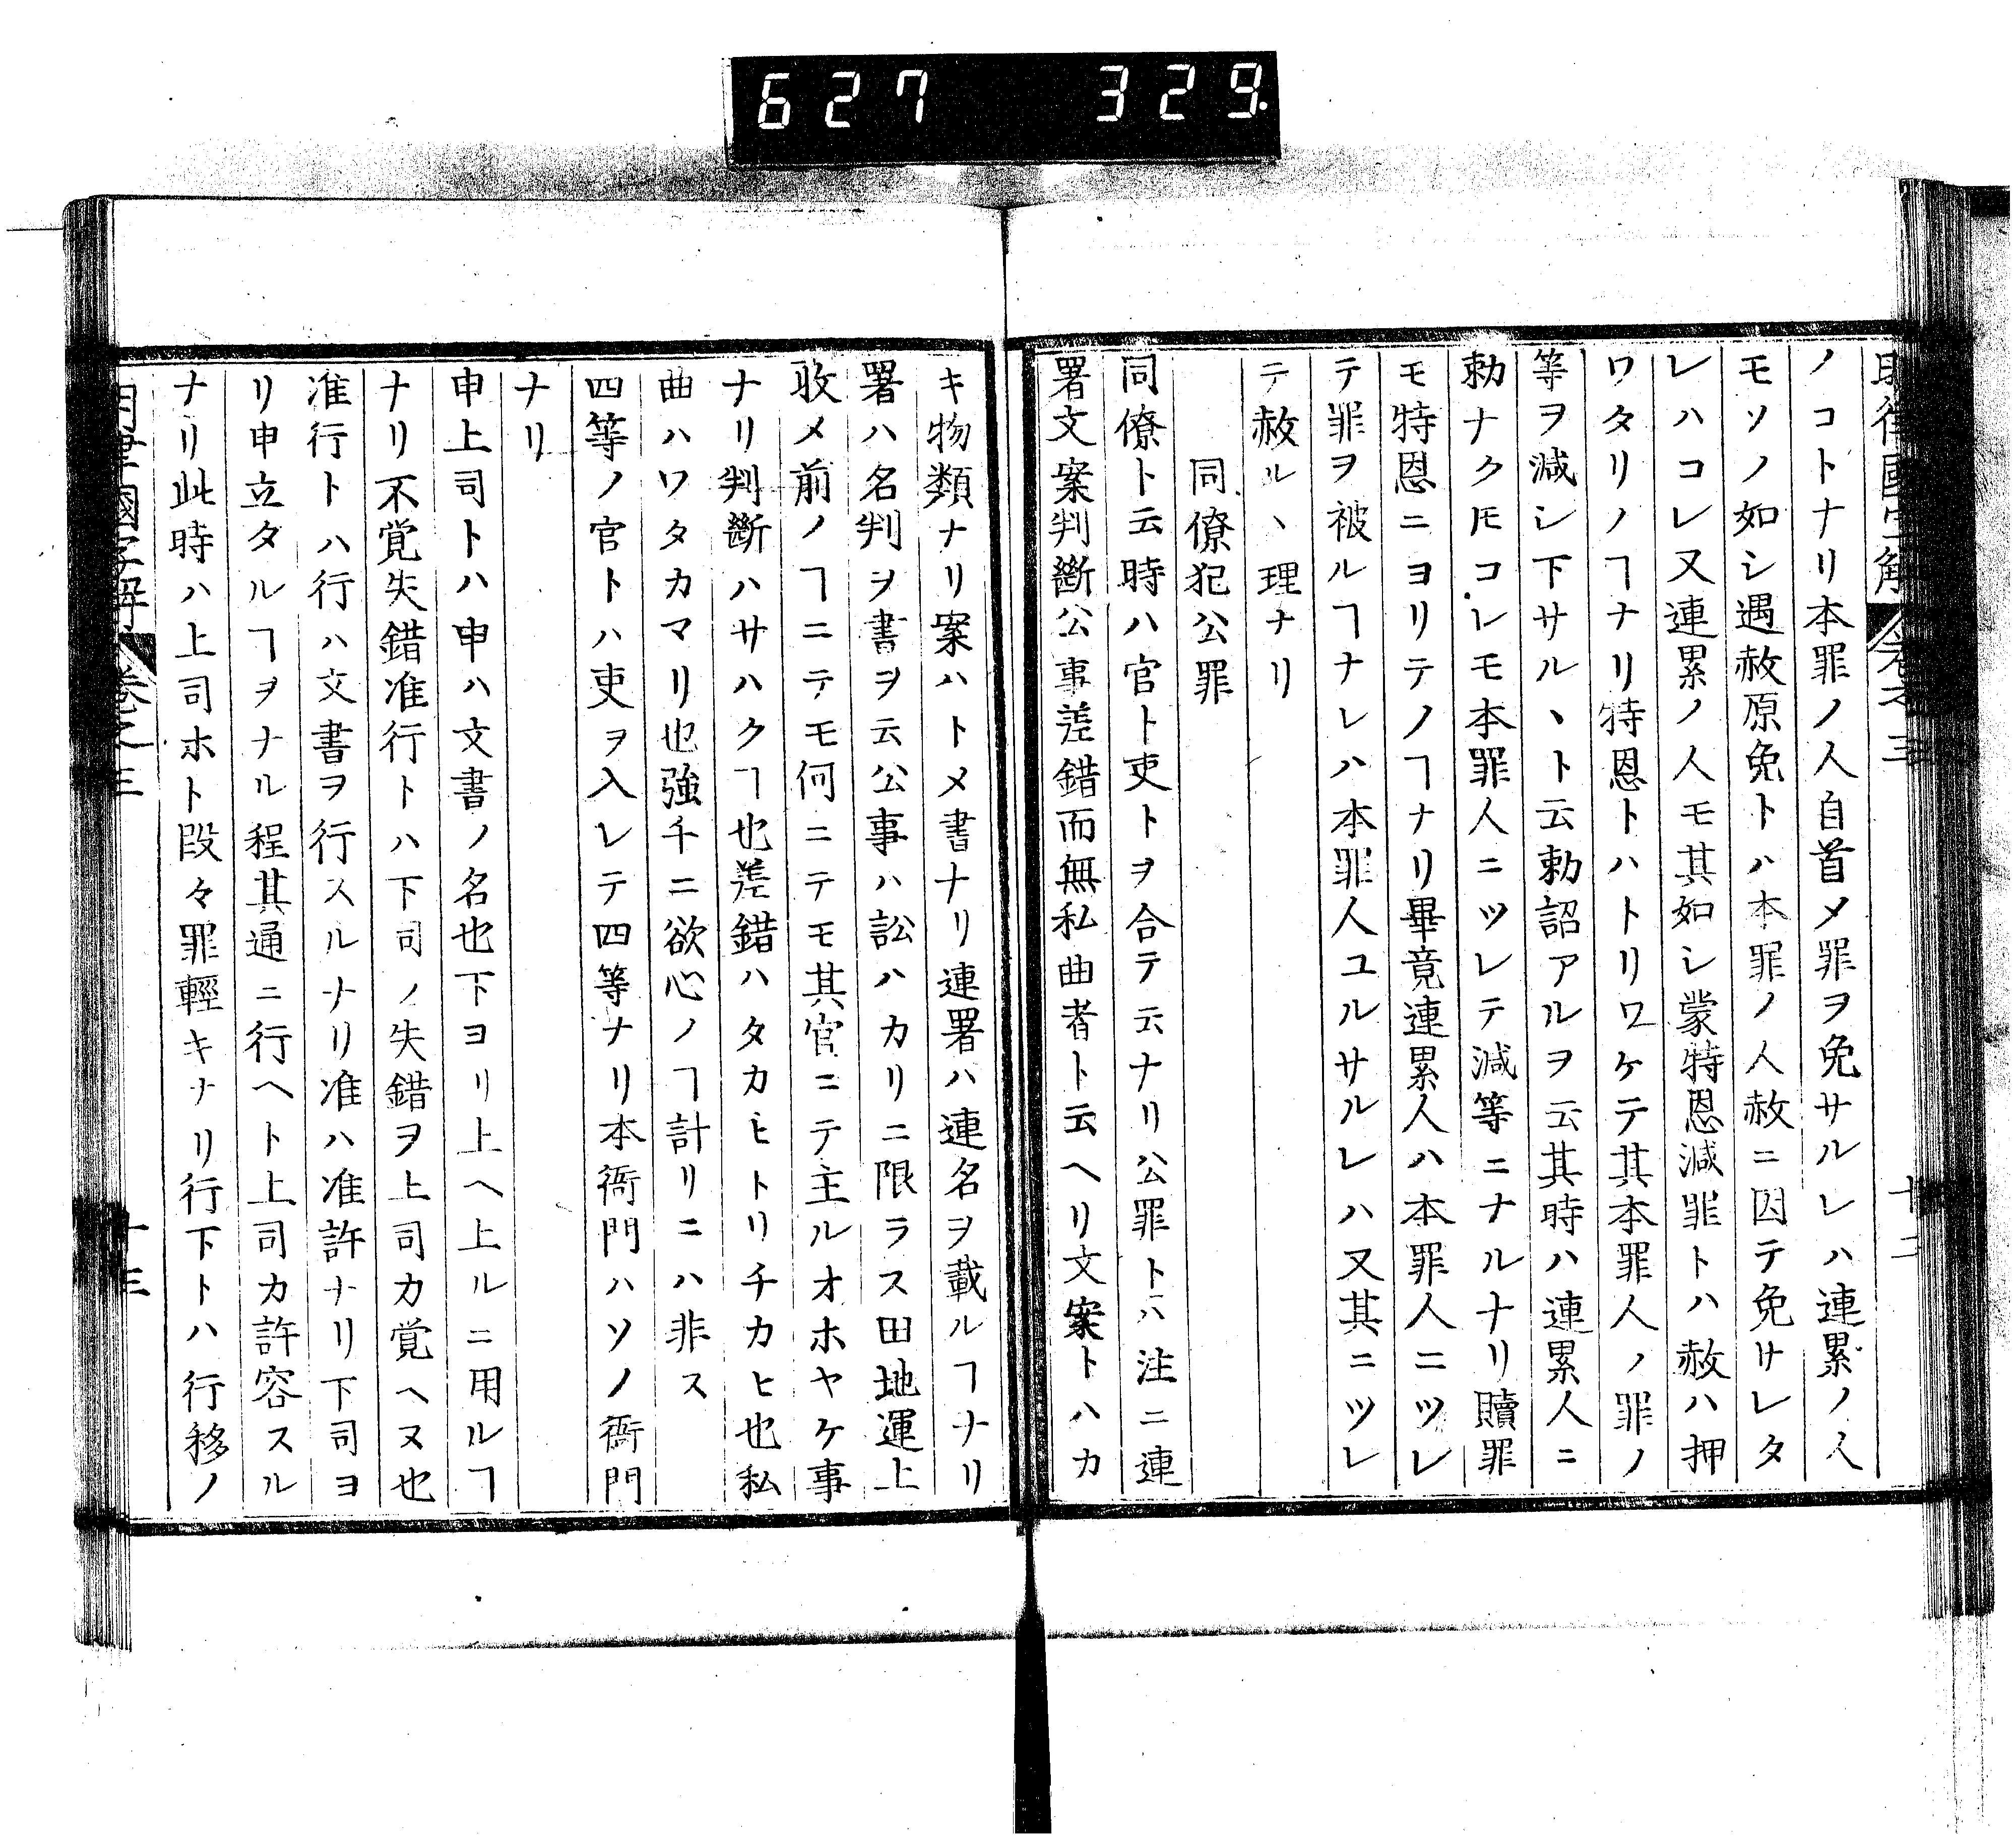 627 329.
ノコトナリ本罪ノ人自首メ罪ヲ免サルレハ連累ノ人
モソノ如シ遇赦原免トハ本罪ノ人赦ニ因テ免サレタ
レハコレ又連累ノ人モ其如シ蒙特恩減罪トハ赦ハ押
ワタリノヿナリ特恩トハトリワケテ其本罪人ノ罪ノ
等ヲ減シ下サルヽト云勅詔アルヲ云其時ハ連累人ニ
勅ナク𪜈コレモ本罪人ニツレテ減等ニナルナリ贖罪
モ特恩ニヨリテノヿナリ畢竟連累人ハ本罪人ニツレ
テ罪ヲ被ルヿナレハ本罪人ユルサルレハ又其ニツレ
テ赦ルヽ理ナリ
同僚犯公罪
同僚ト云時ハ官ト吏トヲ合テ云ナリ公罪トハ注ニ連
署文案判斷公事差錯而無私曲者ト云ヘリ文案トハカ
キ物類ナリ案ハトメ書ナリ連署ハ連名ヲ載ルヿナリ
署ハ名判ヲ書ヲ云公事ハ訟ハカリニ限ラス田地運上
收メ前ノヿニテモ何ニテモ其官ニテ主ルオホヤケ事
ナリ判斷ハサハクヿ也差錯ハタカヒトリチカヒ也私
曲ハワタカマリ也強千ニ欲心ノヿ計リニハ非ス
四等ノ官トハ吏ヲ入レテ四等ナリ本衙門ハソノ衙門
ナリ
申上司トハ申ハ文書ノ名也下ヨリ上ヘ上ルニ用ルヿ
ナリ不覚失錯准行トハ下司ノ失錯ヲ上司カ覚ヘヌ也
准行トハ行ハ文書ヲ行スルナリ准ハ准許ナリ下司ヨ
リ申立タルヿヲナル程其通ニ行ヘト上司カ許容スル
ナリ此時ハ上司ホト段々罪輕キナリ行下トハ行移ノ
卷之三
十三